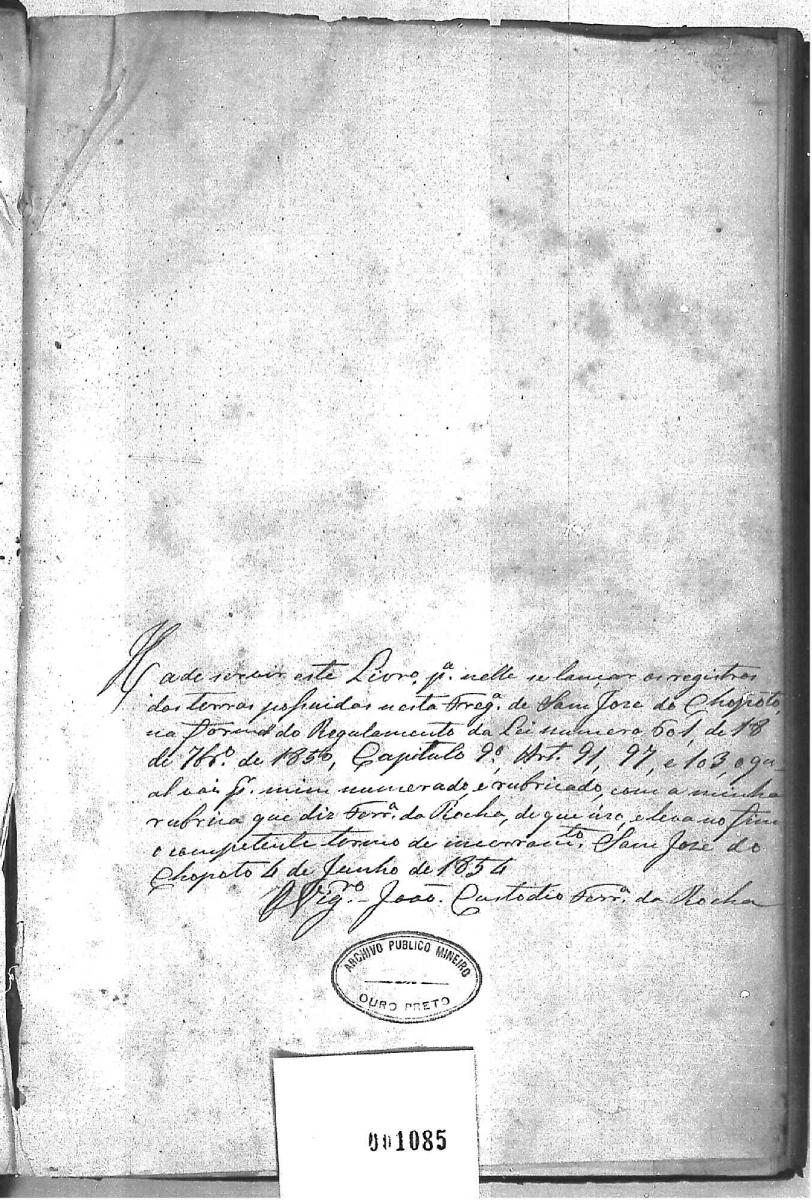 Hade servir este Livro pª. nelle se lançar os registros
das terras possuidas nesta Fregª. de Sam José do Chopotó,
na forma do Regulamento da Lei numero 601, de 18
de 7brº. de 1850, Capitulo 9º. Art. 91, 97, e 103, o qu-
al vai pr. mim numerado, e rubricado, com a minha
rubrica que diz Ferrª. da Rocha, de que uso, e leva no fim
o competente termo de encerramto. Sam José do
Chopotó 4 de Junho de 1854
O Vigro. João Custodio Ferrª. da Rocha
ARCHIVO PUBLICO MINEIRO
OURO PRETO
001085